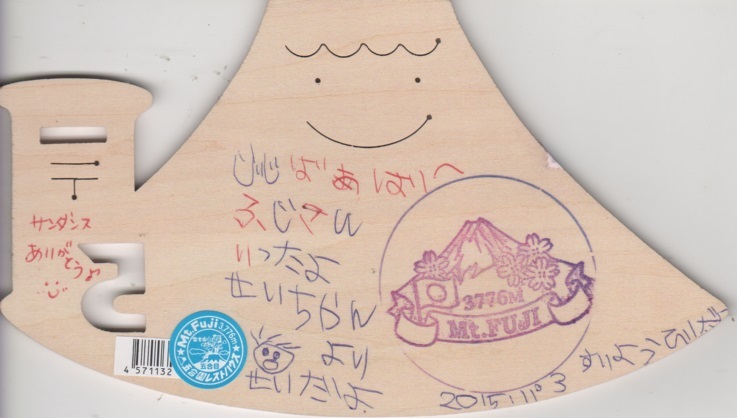 サンダンス
ありがとうよ
じじばあばりへ
ふじさん
いったよ
せいちゃん
より
せいだいよ
2015.11.3
3776M
Mt.FUJI
Mt.Fuji 3776m
五合目
レストハウス
4 571132